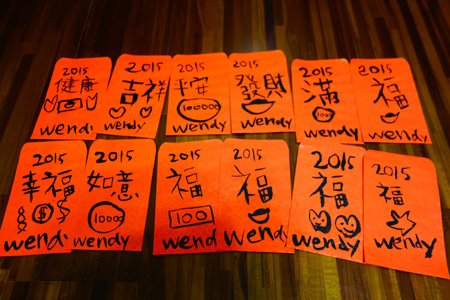 2015
健康
wendy
2015
吉祥
wendy
2015
平安
100000
wendy
2015
發財
wendy
2015
滿
100
wendy
2015
福
wendy
2015
幸福
$
wendi
2015
如意
1000
wendy
2015
福
100
wendy
2015
福
wendy
2015
福
wendy
2015
福
wendy